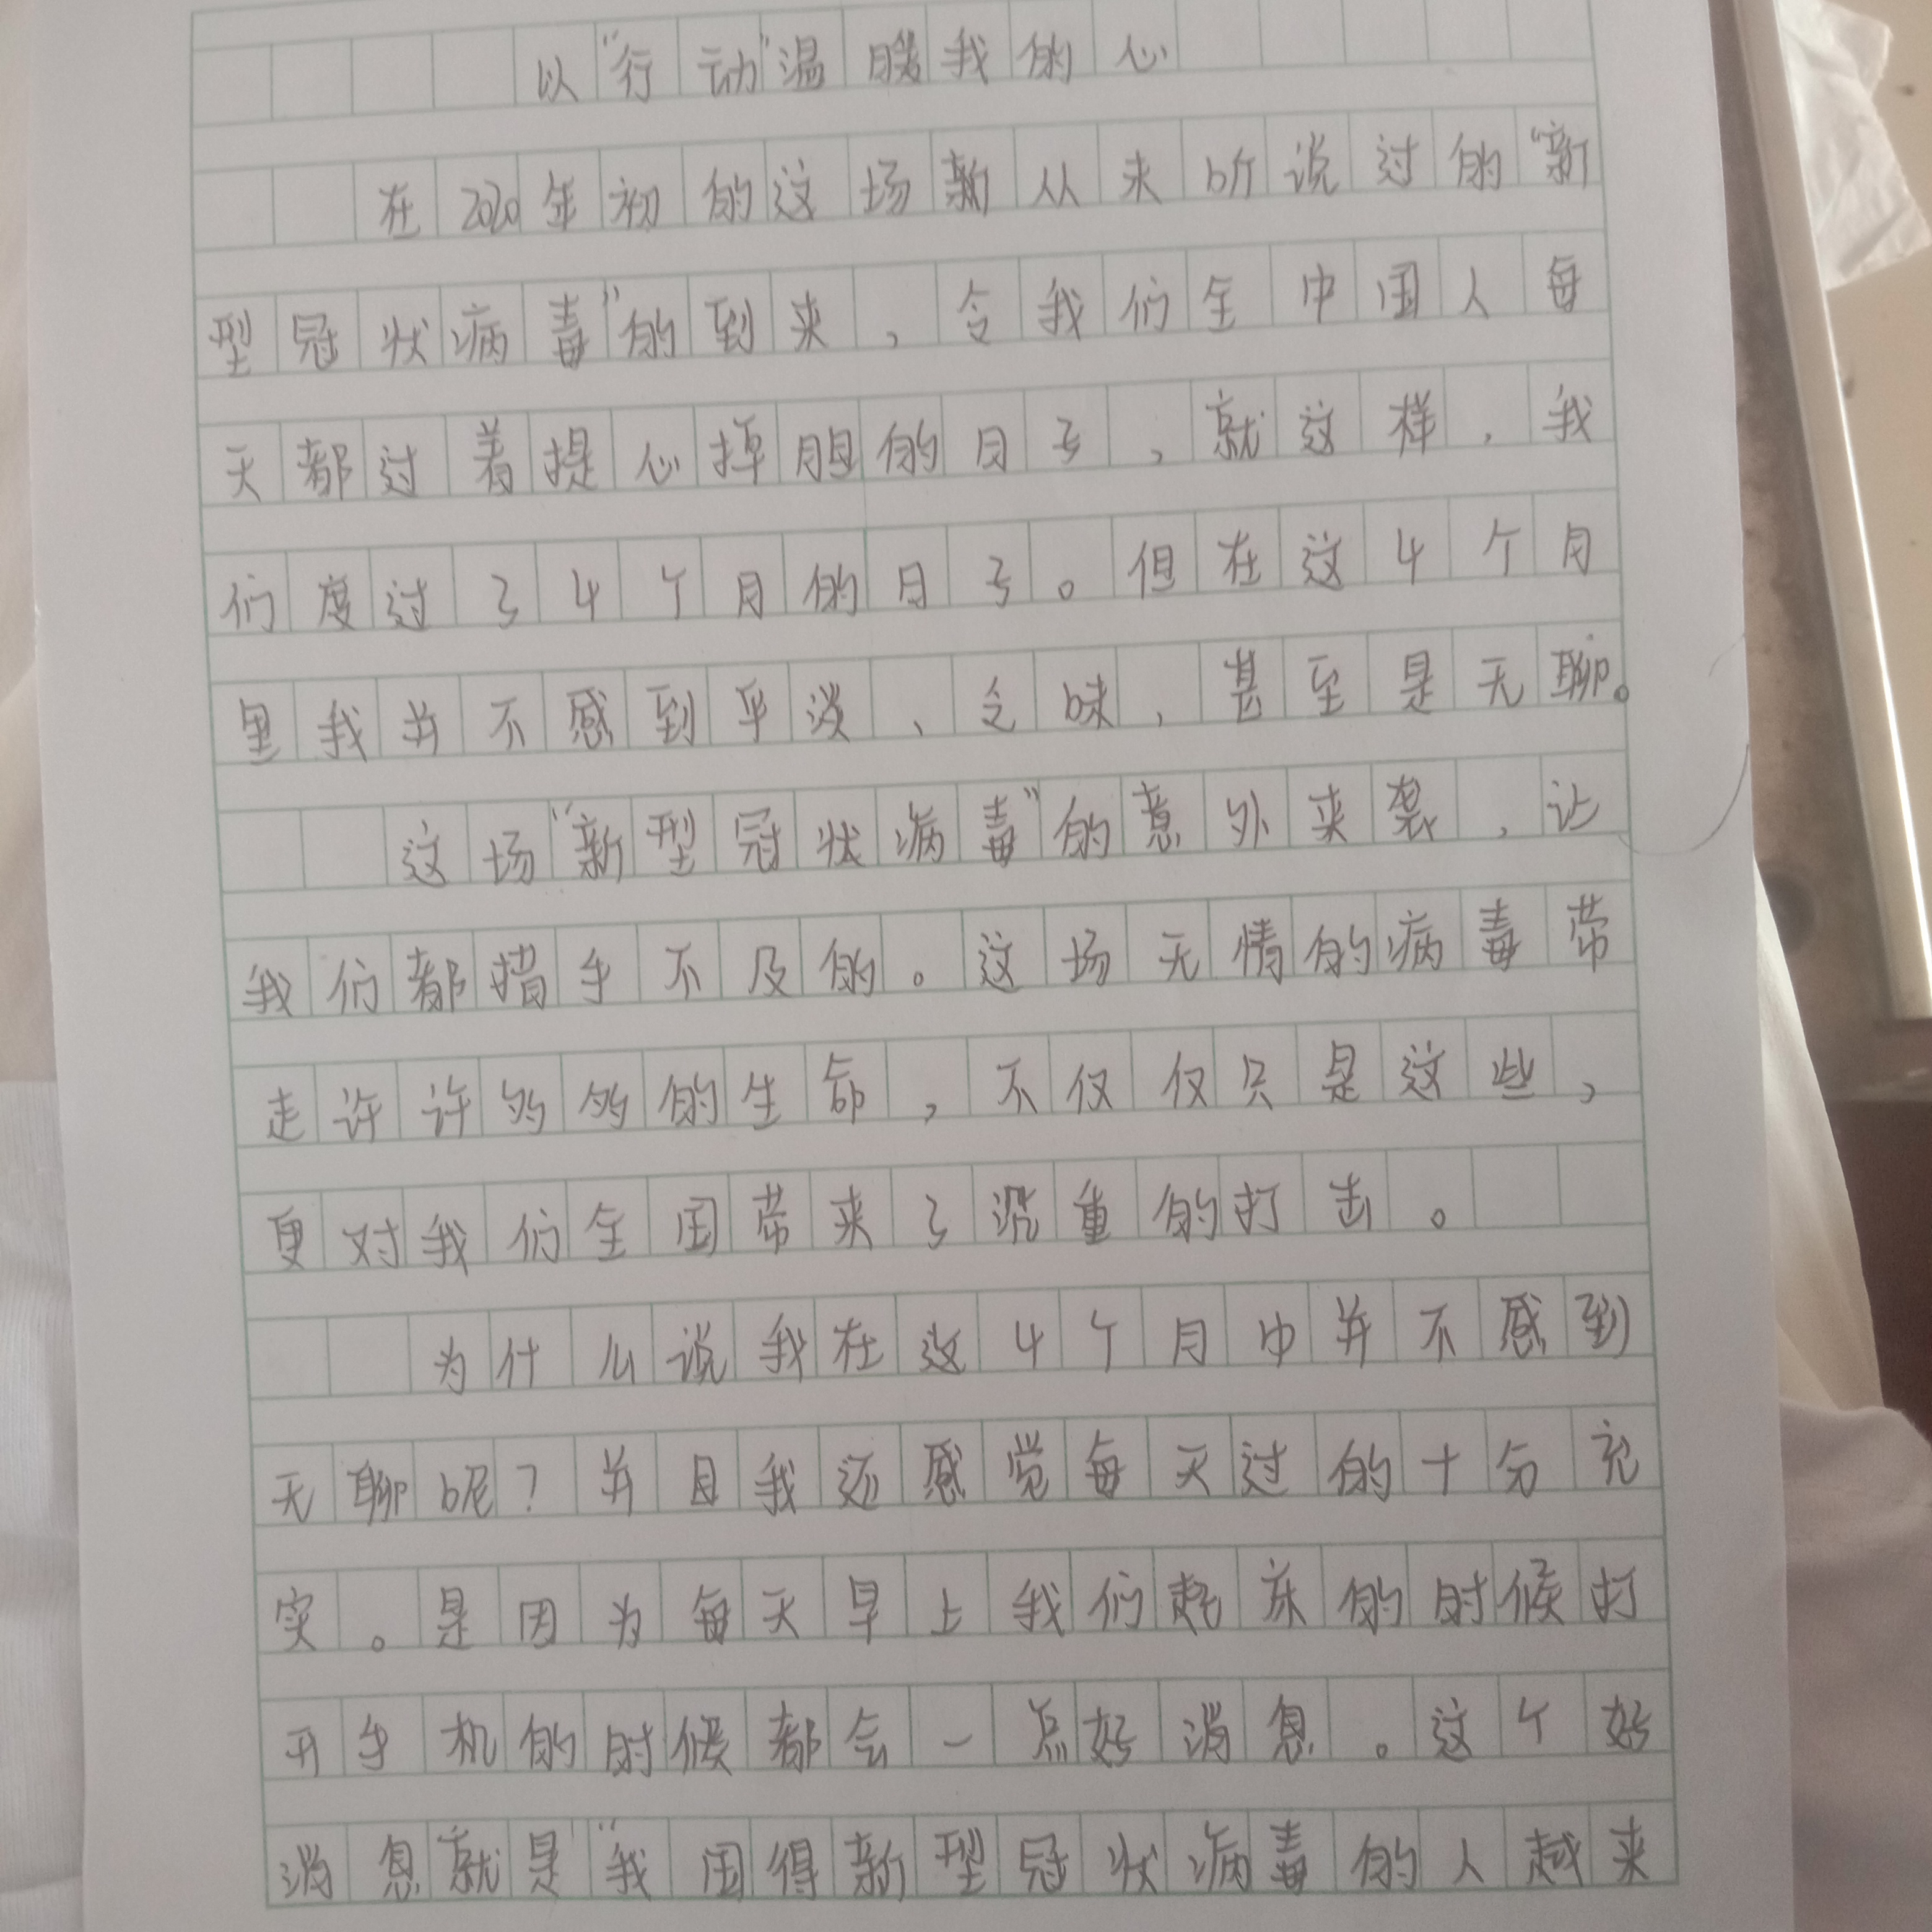 以“行动”温暖我的心
在2020年初的这场新从来听说过的“新
型冠状病毒”的到来，令我们全中国人每
天都过着提心掉胆的日子，就这样，我
们度过了4个月的日子。但在这4个月
里我并不感到平淡、乏味，甚至是无聊。
这场“新型冠状病毒”的意外来袭，让
我们都措手不及的。这场无情的病毒带
走许许多多的生命，不仅仅只是这些，
更对我们全国带来了沉重的打击。
为什么说我在这4个月中并不感到
无聊呢？并且我还感觉每天过的十分充
实。是因为每天早上我们起床的时候打
开手机的时候都会一点好消息。这个好
消息就是“我国得新型冠状病毒的人越来